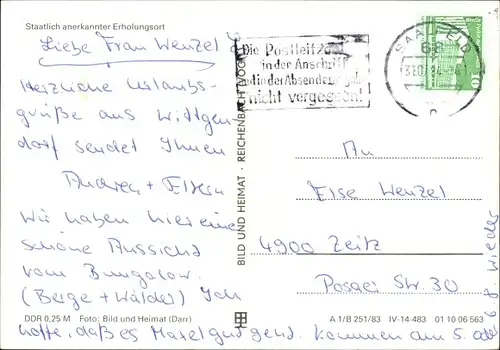 Staatlich anerkannter Erholungsort
Liebe Frau Wenzel
Herzliche Urlaubs-
grüße aus Wittgen-
dorf sendet Ihnen
Andrea + Eltern
Wir haben hier eine
schöne Aussicht
vom Bungalow.
(Berge + Wälder) Ich
hoffe, daß es Masel gut geht. Kommen am 5. od
6.8 wieder
DDR 0,25 M Foto: Bild und Heimat (Darr)
BILD UND HEIMAT · REICHENBACH (VOGTL)
Die Postleitzahl
in der Anschrift
und in der Absenderangabe
nicht vergessen!
SAALFELD
68
An
Else Wenzel
4900 Zeitz
Posaer Str. 30
A 1/B 251/83 IV-14-483 01 10 06 563